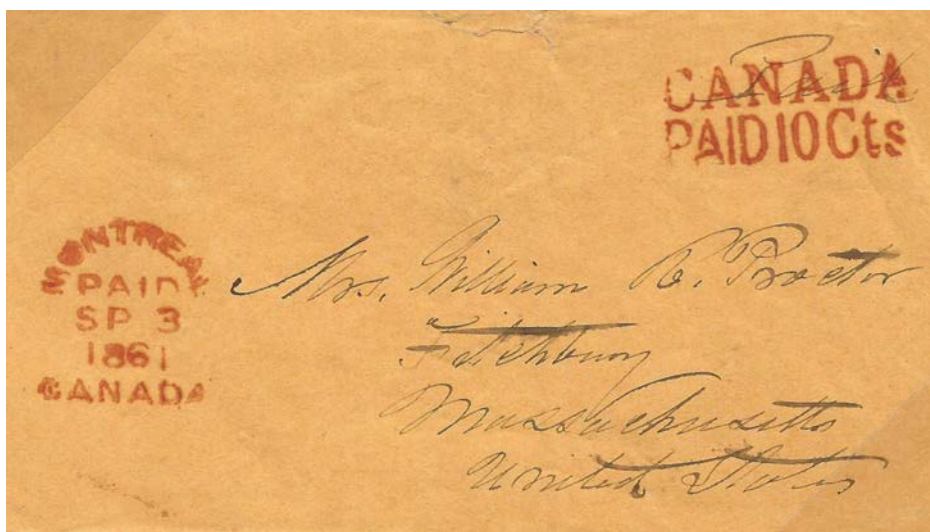 Paid
CANADA
PAID 10 Cts
MONTREAL
PAID
SP 3
1861
CANADA
Mrs. William B. Proctor
Fitchburg
Massachusetts
United States